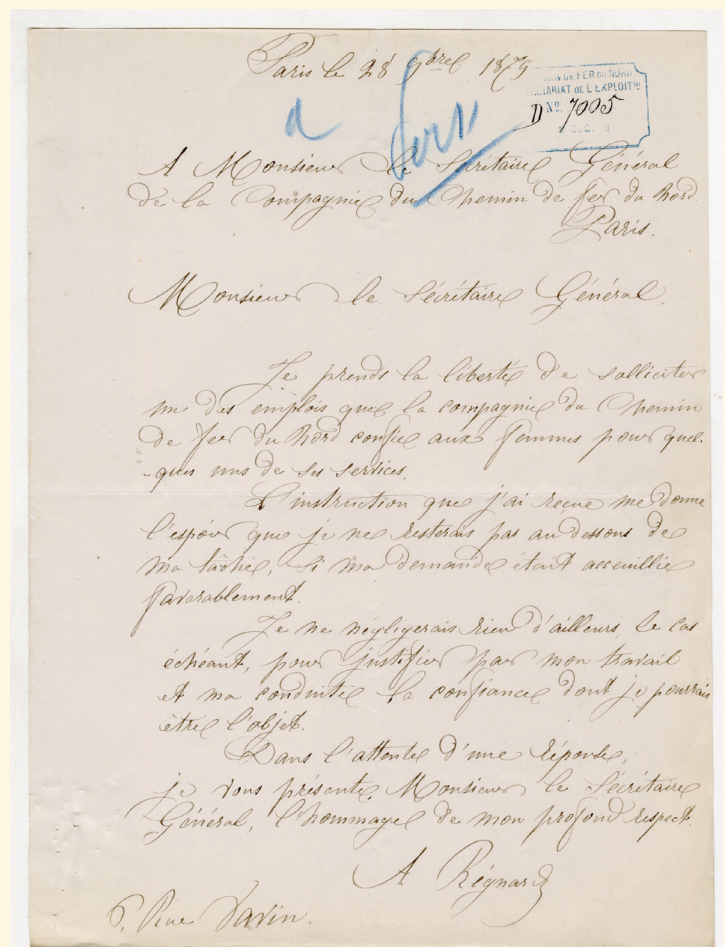 Paris le 28 9bre 1879
CHEMIN DE FER DU NORD
SECRÉTARIAT DE L'EXPLOITon
D No. 7005
a
A Monsieur le Secrétaire Général
de la Compagnie du Chemin de fer du Nord.
Paris.
Monsieur le Sécrétaire Général,
Je prends la liberté de solliciter
un des emplois que la compagnie du Chemin
de fer du Nord confie aux femmes pour quel-
-ques uns de ses services.
L'instruction que j'ai reçue me donne
l'espoir que je ne resterais pas au dessous de
ma tâche, si ma demande était acceuillie
favorablement.
Je ne négligerais rien d'ailleurs, le cas
échéant, pour justifier par mon travail
et ma conduite la confiance dont je pourrais
être l'objet.
Dans l'attente d'une réponse,
je vous présente, Monsieur le Sécrétaire
Général, l'hommage de mon profond respect.
A Régnard
Rue Vavin.